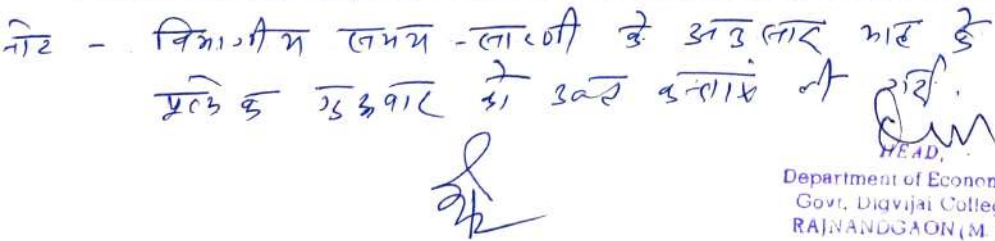 नोट - विभागीय समय-सारणी के अनुसार माह के
प्रत्येक गुरुवार को उक्त कक्षाएं ली गयी.
HEAD,
Department of Econom
Govt. Digvijai Colleg
RAJNANDGAON (M.